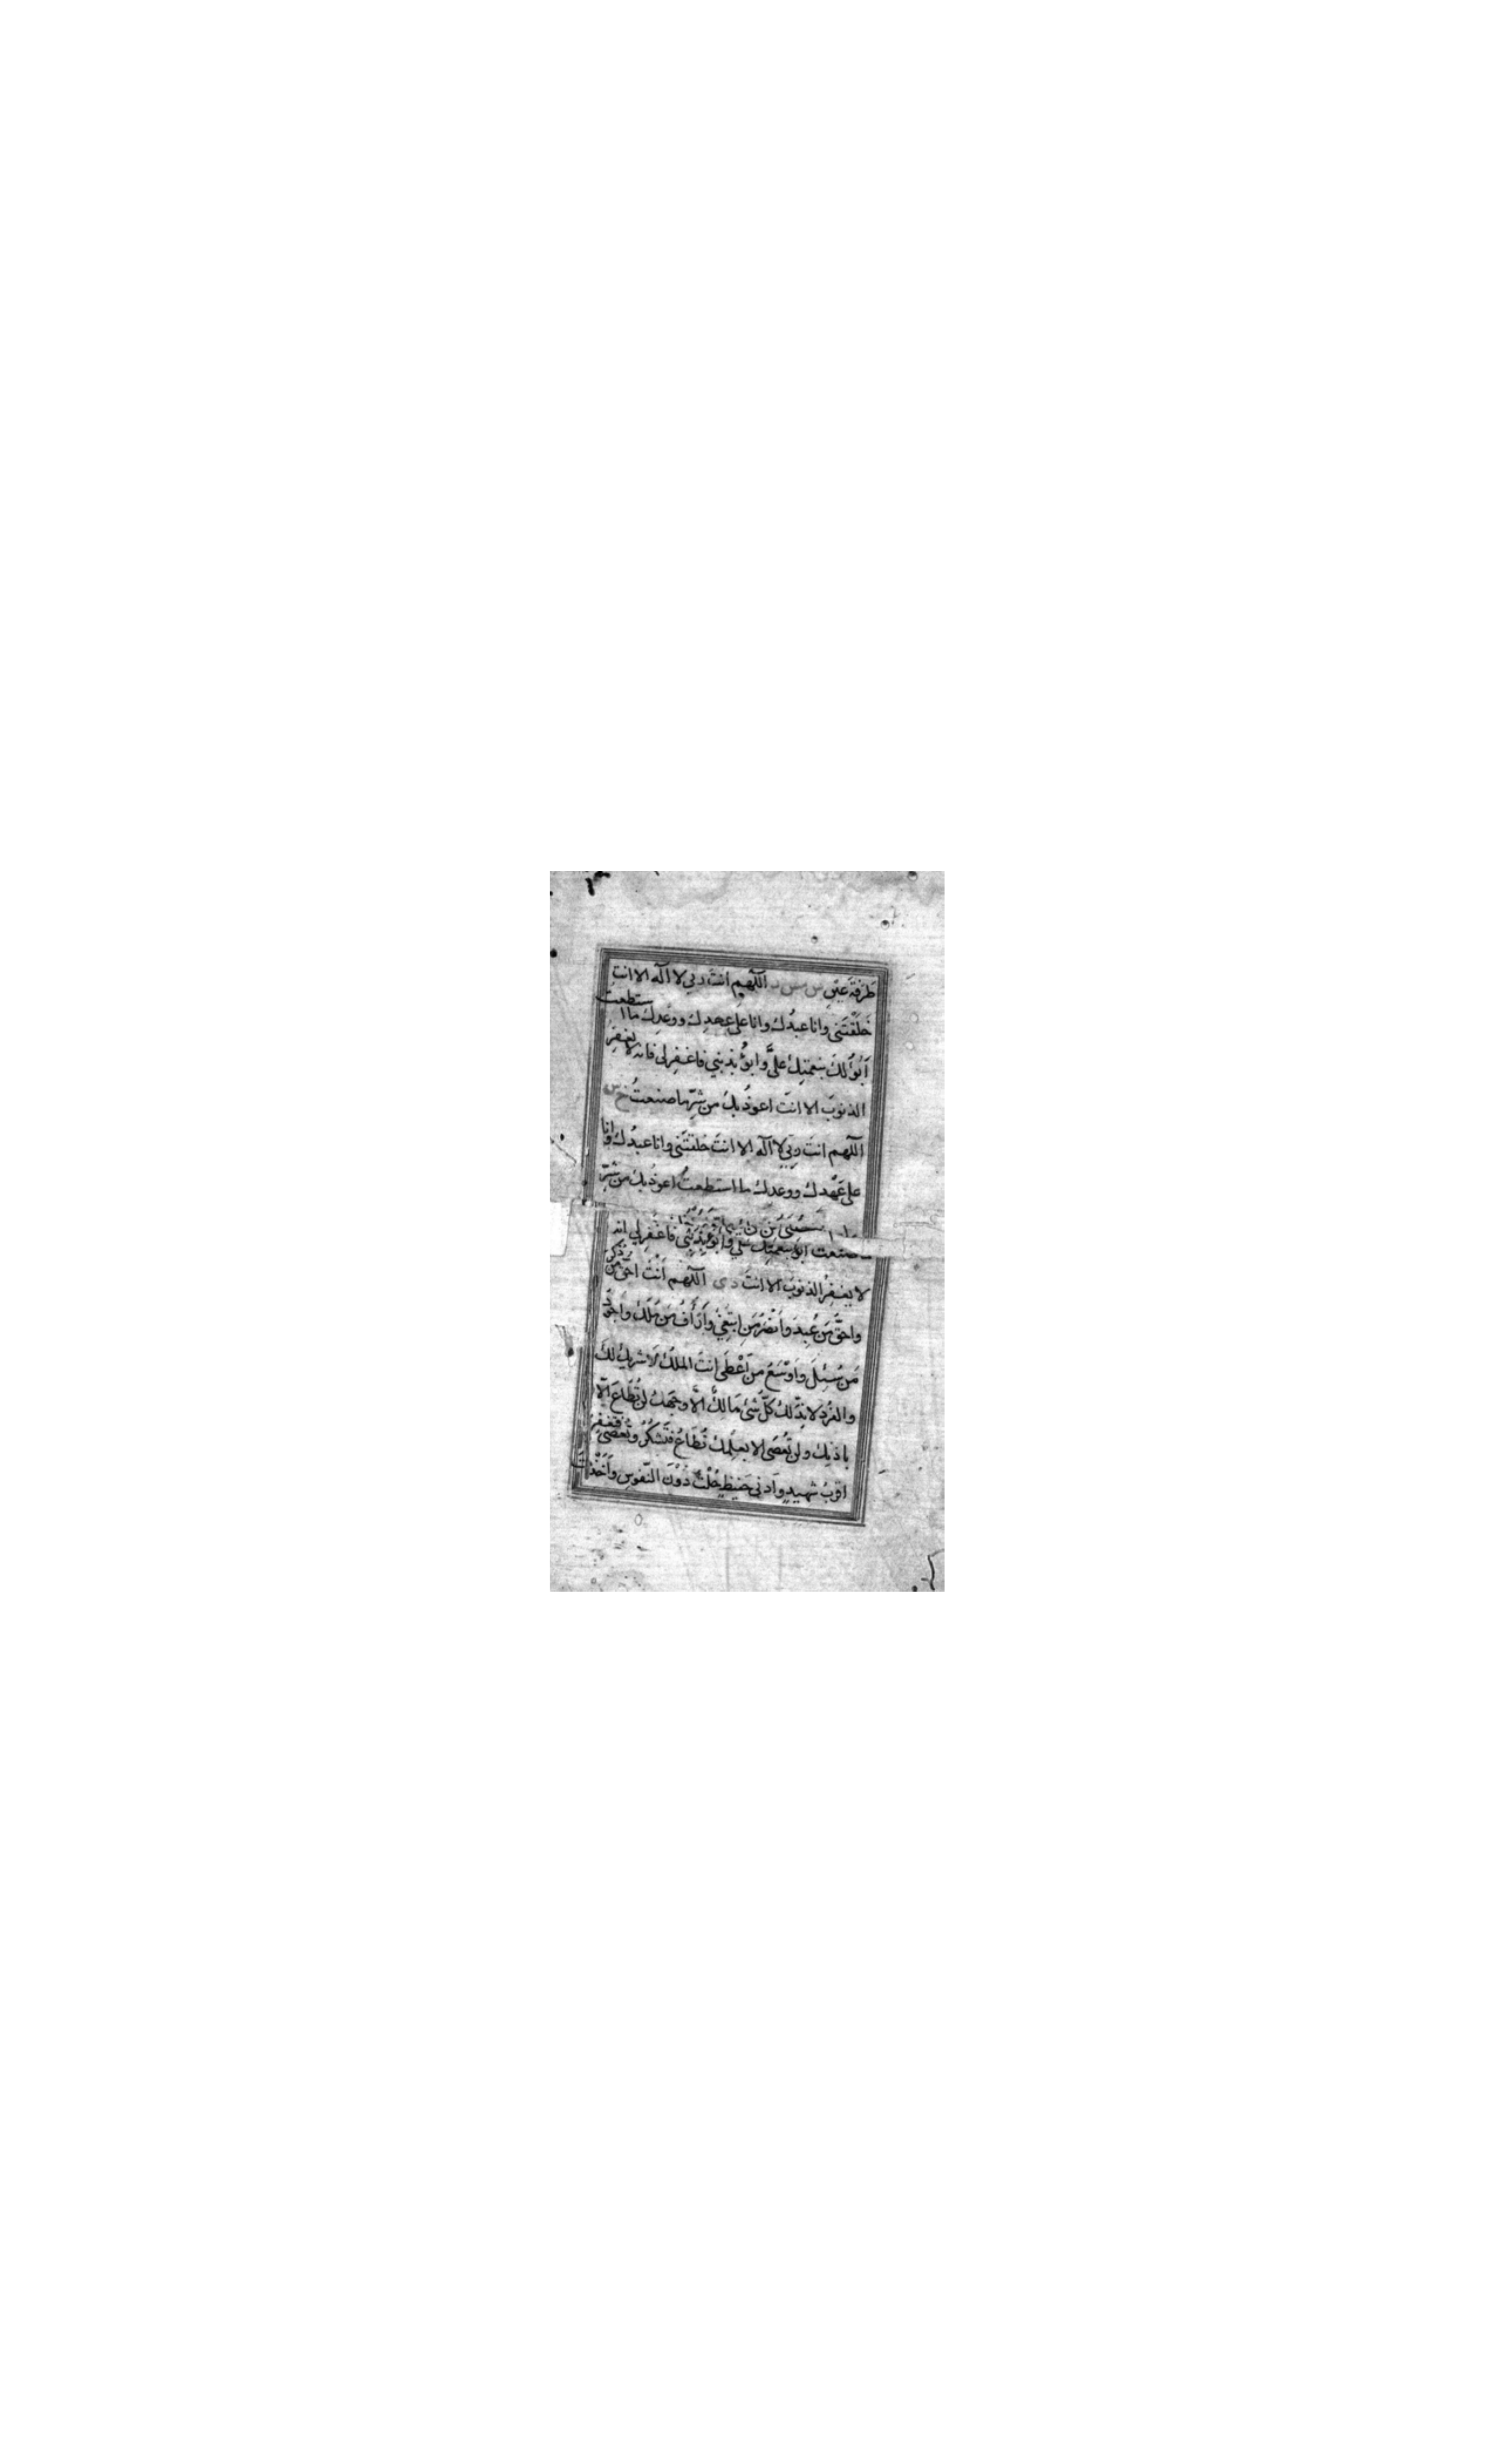 طَرْفَةَ عَيْنٍ س مس د اللّهم انتَ ربي لا اله الا انت
خَلَقْتَنِى وانا عبدُك وانا على عهدِك ووعدِك ما استطعتُ
اَبُوْءُ لكَ بنعمتِك علىَّ وابوْءُ بذنبي فاغفِرلى فانه لا يغفِرُ
الذنوبَ الا انتَ اعوذُ بك من شرِّ ما صنعتُ خ س
اللّهم انتَ ربي لا اله الا انتَ خلقتَنى وانا عبدُك وانا
على عَهْدك ووعدك ما استطعتُ اعوذُ بك من شرِّ
ما صنعت ابوء بنعمتِك علي وابوْء بِذَنْبِى فاغفِرلي انه
لا يغفِرُ الذنوبَ الا انتَ د ى اللّهم اَنْتَ احقُّ من ذُكِرَ
واحقُّ مَن عُبِدَ وَاَنْصَرُ مَنِ ابْتُغِيَ وَاَرْأَفُ مَن مَلَكَ واَجْوَدُ
مَن سُئِلَ وَاَوْسَعُ من اَعْطَى انتَ الملكُ لا شريكَ لكَ
والفردُ لا نِدَّ لكَ كلُّ شَئٍ هَالِكٌ الّا وجهَكَ لن تُطَاعَ الّا
باذنِك ولن تُعْصَى الا بعلمِك تُطَاعُ فتَشكُرُ وتُعْصَى فتغفِرُ
اقربُ شهيدٍ وَاَدنى حَفيظٍ حُلْتَ دُوْنَ النّفوسِ وَاَخَذْتَ